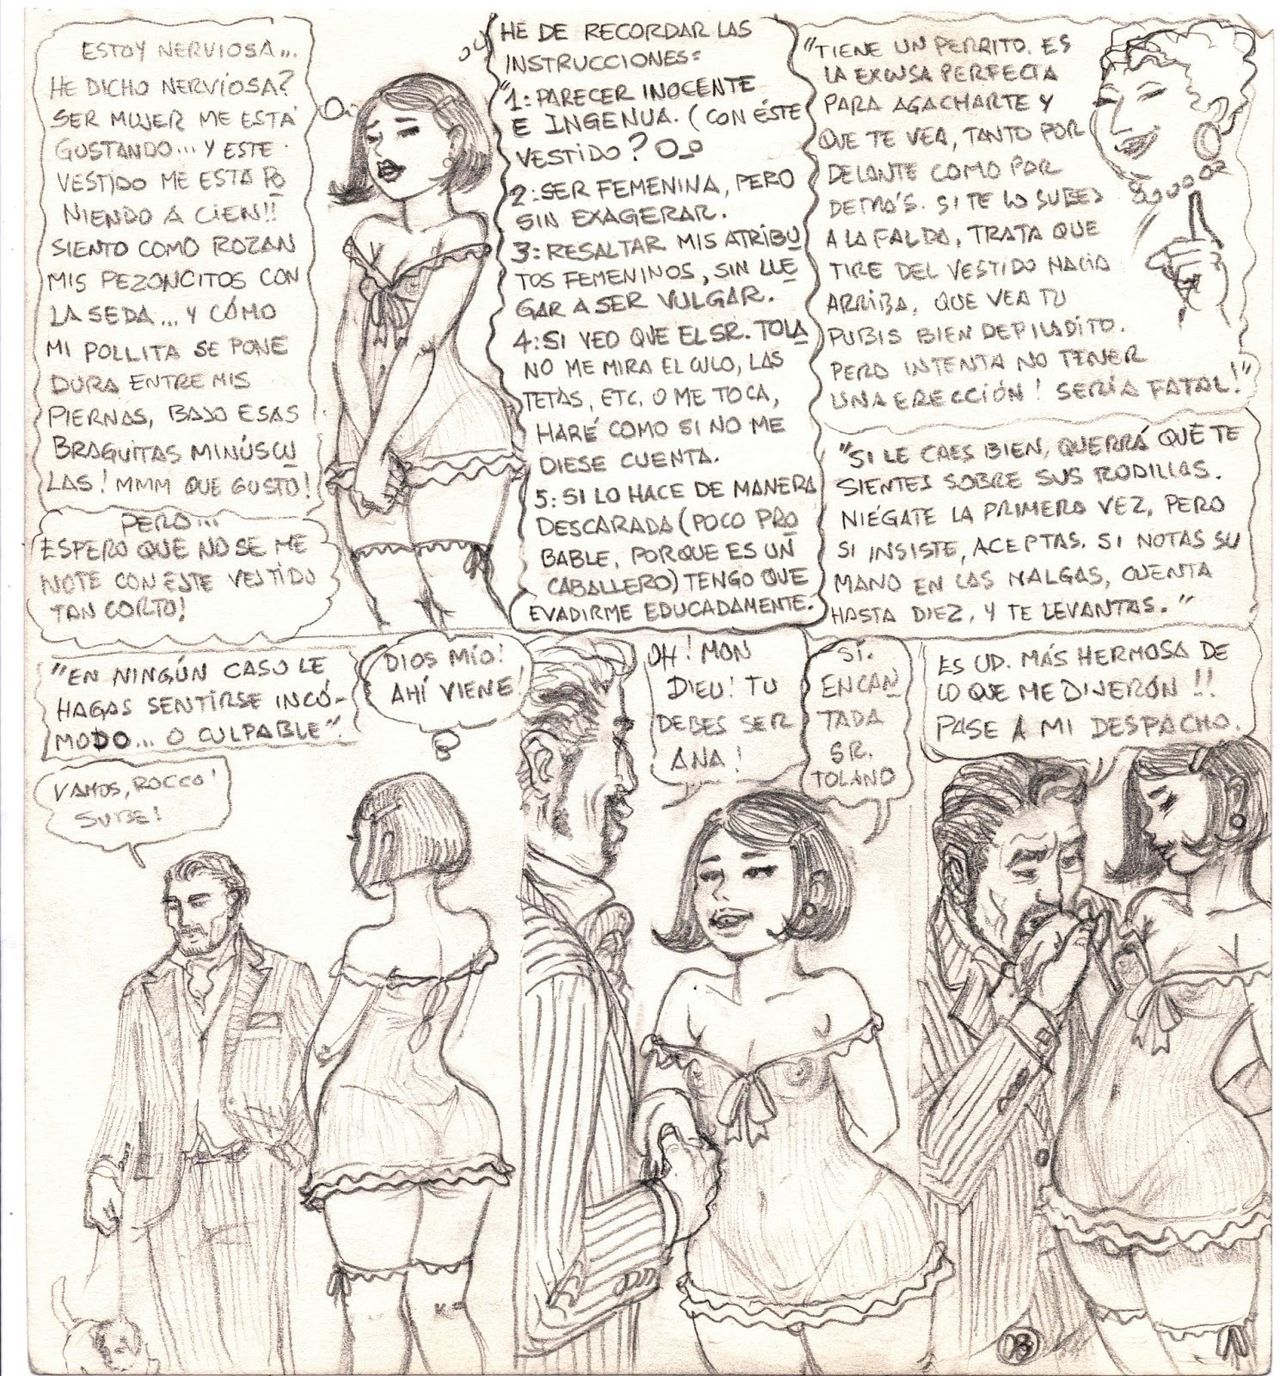 ESTOY NERVIOSA...
HE DICHO NERVIOSA?
SER MUJER ME ESTÁ
GUSTANDO... Y ESTE
VESTIDO ME ESTA PO
NIENDO A CIEN!!
SIENTO COMO ROZAN
MIS PEZONCITOS CON
LA SEDA... Y CÓMO
MI POLLITA SE PONE
DURA ENTRE MIS
PIERNAS, BAJO ESAS
BRAGUITAS MINÚSCU
LAS! MMM QUE GUSTO!
PERO...
ESPERO QUE NO SE ME
NOTE CON ESTE VESTIDO
TAN CORTO!
HE DE RECORDAR LAS
INSTRUCCIONES:
"1: PARECER INOCENTE
E INGENUA. (CON ÉSTE
VESTIDO? O_O
2: SER FEMENINA, PERO
SIN EXAGERAR.
3: RESALTAR MIS ATRIBU
TOS FEMENINOS, SIN LLE
GAR A SER VULGAR.
4: SI VEO QUE EL SR. TOLA
NO ME MIRA EL CULO, LAS
TETAS, ETC. O ME TOCA,
HARÉ COMO SI NO ME
DIESE CUENTA.
5: SI LO HACE DE MANERA
DESCARADA (POCO PRO
BABLE, PORQUE ES UN
CABALLERO) TENGO QUE
EVADIRME EDUCADAMENTE.
"TIENE UN PERRITO. ES
LA EXCUSA PERFECTA
PARA AGACHARTE Y
QUE TE VEA, TANTO POR
DELANTE COMO POR
DETRÁS. SI TE LO SUBES
A LA FALDA, TRATA QUE
TIRE DEL VESTIDO HACIA
ARRIBA, QUE VEA TU
PUBIS BIEN DEPILADITO.
PERO INTENTA NO TENER
UNA ERECCIÓN! SERÍA FATAL!"
"SI LE CAES BIEN, QUERRÁ QUE TE
SIENTES SOBRE SUS RODILLAS.
NIÉGATE LA PRIMERA VEZ, PERO
SI INSISTE, ACEPTAS. SI NOTAS SU
MANO EN LAS NALGAS, CUENTA
HASTA DIEZ, Y TE LEVANTAS."
"EN NINGÚN CASO LE
HAGAS SENTIRSE INCÓ-
MODO... O CULPABLE"
DIOS MÍO!
AHÍ VIENE!
VAMOS, ROCCO!
SUBE!
OH! MON
DIEU! TU
DEBES SER
ANA!
SÍ.
ENCAN
TADA
SR.
TOLANO
ES UD. MÁS HERMOSA DE
LO QUE ME DIJERÓN!!
PASE A MI DESPACHO.